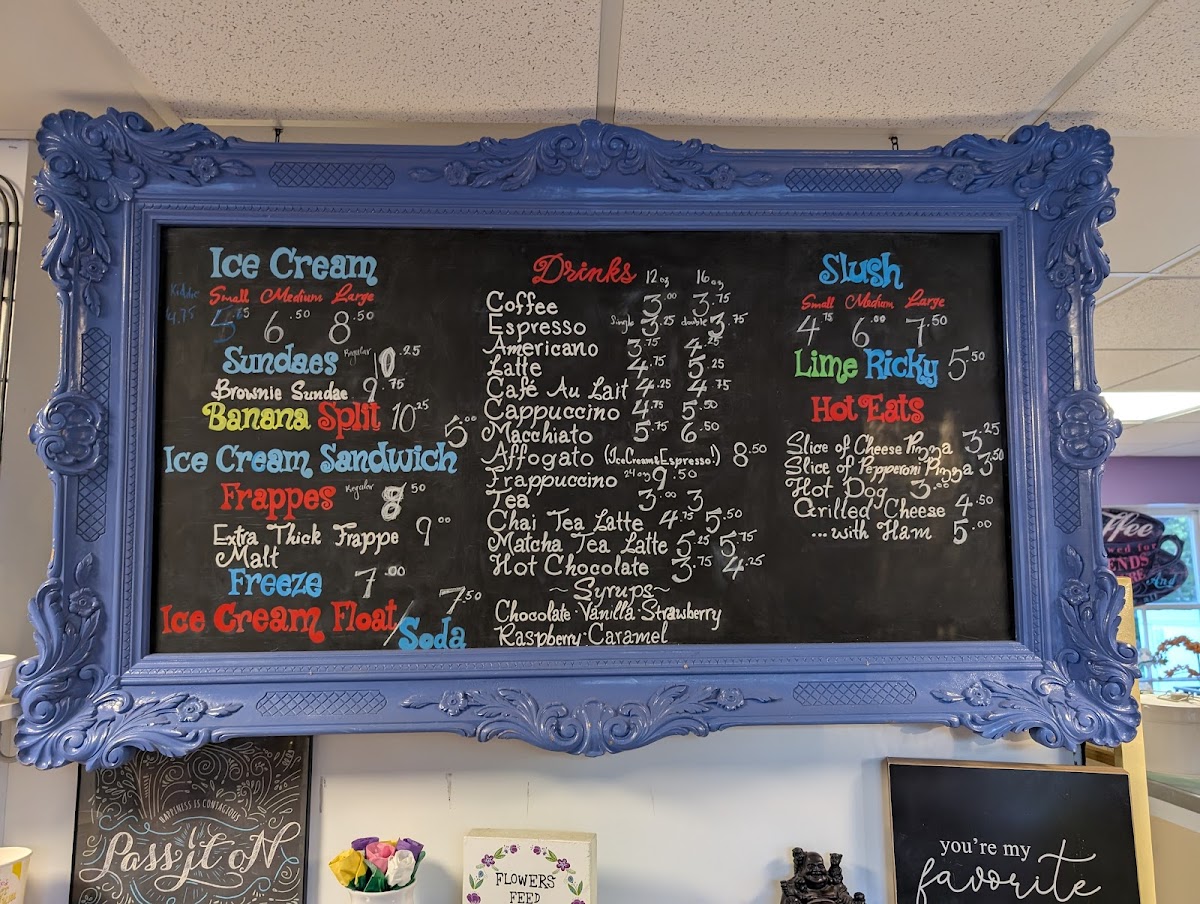 Ice Cream
Kiddie Small Medium Large
4.75 5.65 6.50 8.50
Sundaes Regular 10.25
Brownie Sundae 9.75
Banana Split 10.25
Ice Cream Sandwich 5.00
Frappes Regular 8.50
Extra Thick Frappe 9.00
Malt
Freeze 7.00
Ice Cream Float/Soda 7.50
Drinks 12oz 16oz
Coffee 3.00 3.75
Espresso Single 3.25 double 3.75
Americano 3.75 4.25
Latte 4.75 5.25
Café Au Lait 4.25 4.75
Cappuccino 4.75 5.50
Macchiato 5.75 6.50
Affogato (Ice Cream & Espresso!) 8.50
Frappuccino 24oz 9.50
Tea 3.00 3
Chai Tea Latte 4.75 5.50
Matcha Tea Latte 5.25 5.75
Hot Chocolate 3.75 4.25
~Syrups~
Chocolate·Vanilla·Strawberry
Raspberry·Caramel
Slush
Small Medium Large
4.75 6.00 7.50
Lime Ricky 5.50
Hot Eats
Slice of Cheese Pizza 3.25
Slice of Pepperoni Pizza 3.50
Hot Dog 3.00
Grilled Cheese 4.50
...with Ham 5.00
HAPPINESS IS CONTAGIOUS
Pass it oN
FLOWERS
FEED
you're my
favorite